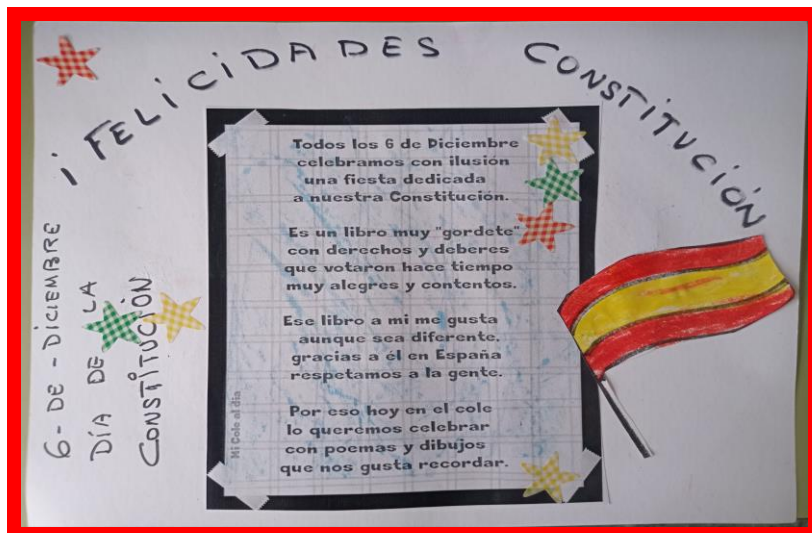 ¡FELICIDADES CONSTITUCIÓN
6-DE-DICIEMBRE
DÍA DE LA
CONSTITUCIÓN
Todos los 6 de Diciembre
celebramos con ilusión
una fiesta dedicada
a nuestra Constitución.
Es un libro muy "gordete"
con derechos y deberes
que votaron hace tiempo
muy alegres y contentos.
Ese libro a mi me gusta
aunque sea diferente.
gracias a él en España
respetamos a la gente.
Por eso hoy en el cole
lo queremos celebrar
con poemas y dibujos
que nos gusta recordar.
Mi Cole al día